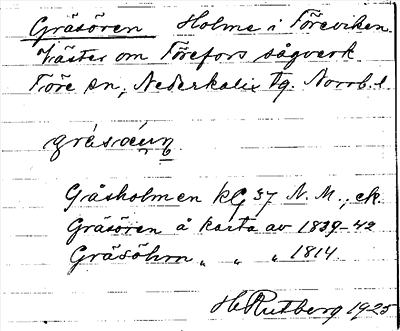 Gräsören Holme i Töreviken
Väster om Törefors sågverk
Töre sn, Nederkalix tg. Norrb. l.
gräsǿŕn
Gräsholmen kG 37 N. M., ek.
Gräsören å karta av 1839-42
Gräsöhrn „ „ „ 1814
H Rutberg 1925